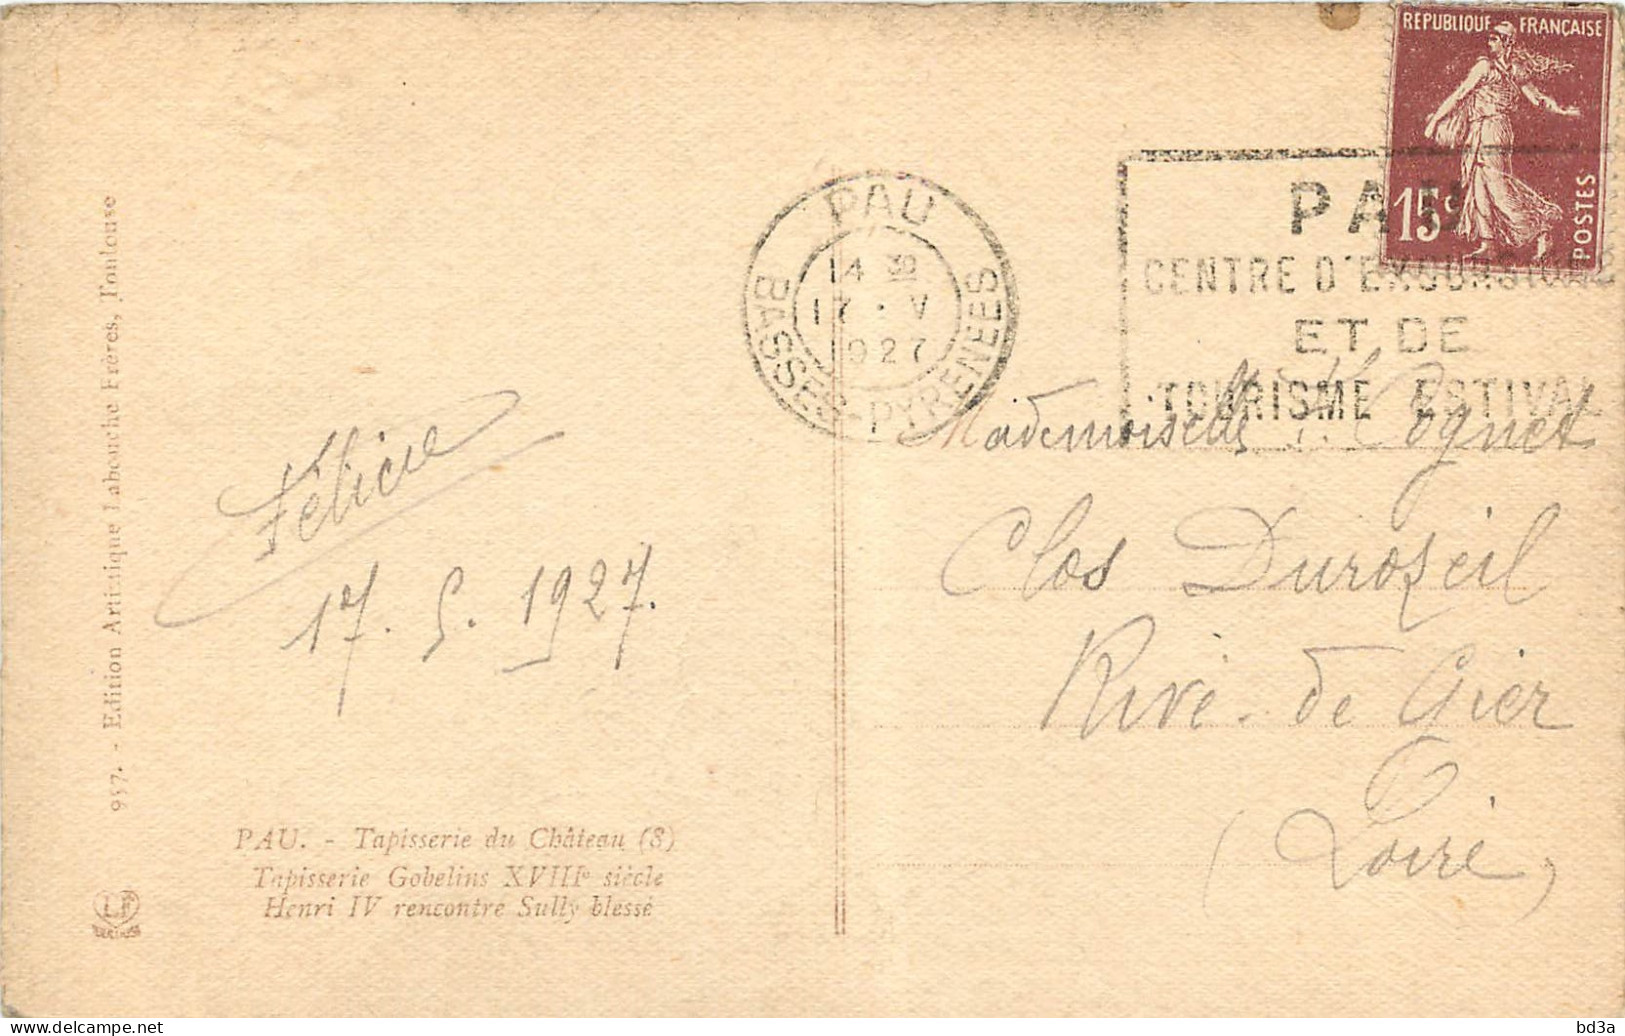 REPUBLIQUE FRANÇAISE
15c
POSTES
PAU
14 30
17 · V
1927
BASSES-PYRENEES
PAU
CENTRE D'EXCURSIONS
ET DE
TOURISME ESTIVAL
Félicie
17. 5. 1927.
Mademoiselle Cognet
Clos Durozeil
Rive-de Gier
(Loire)
PAU. - Tapisserie du Château (8)
Tapisserie Gobelins XVIIIe siècle
Henri IV rencontre Sully blessé
957. - Edition Artistique Labouche Frères, Toulouse
LF
TOULOUSE
delcampe.net
bd3a